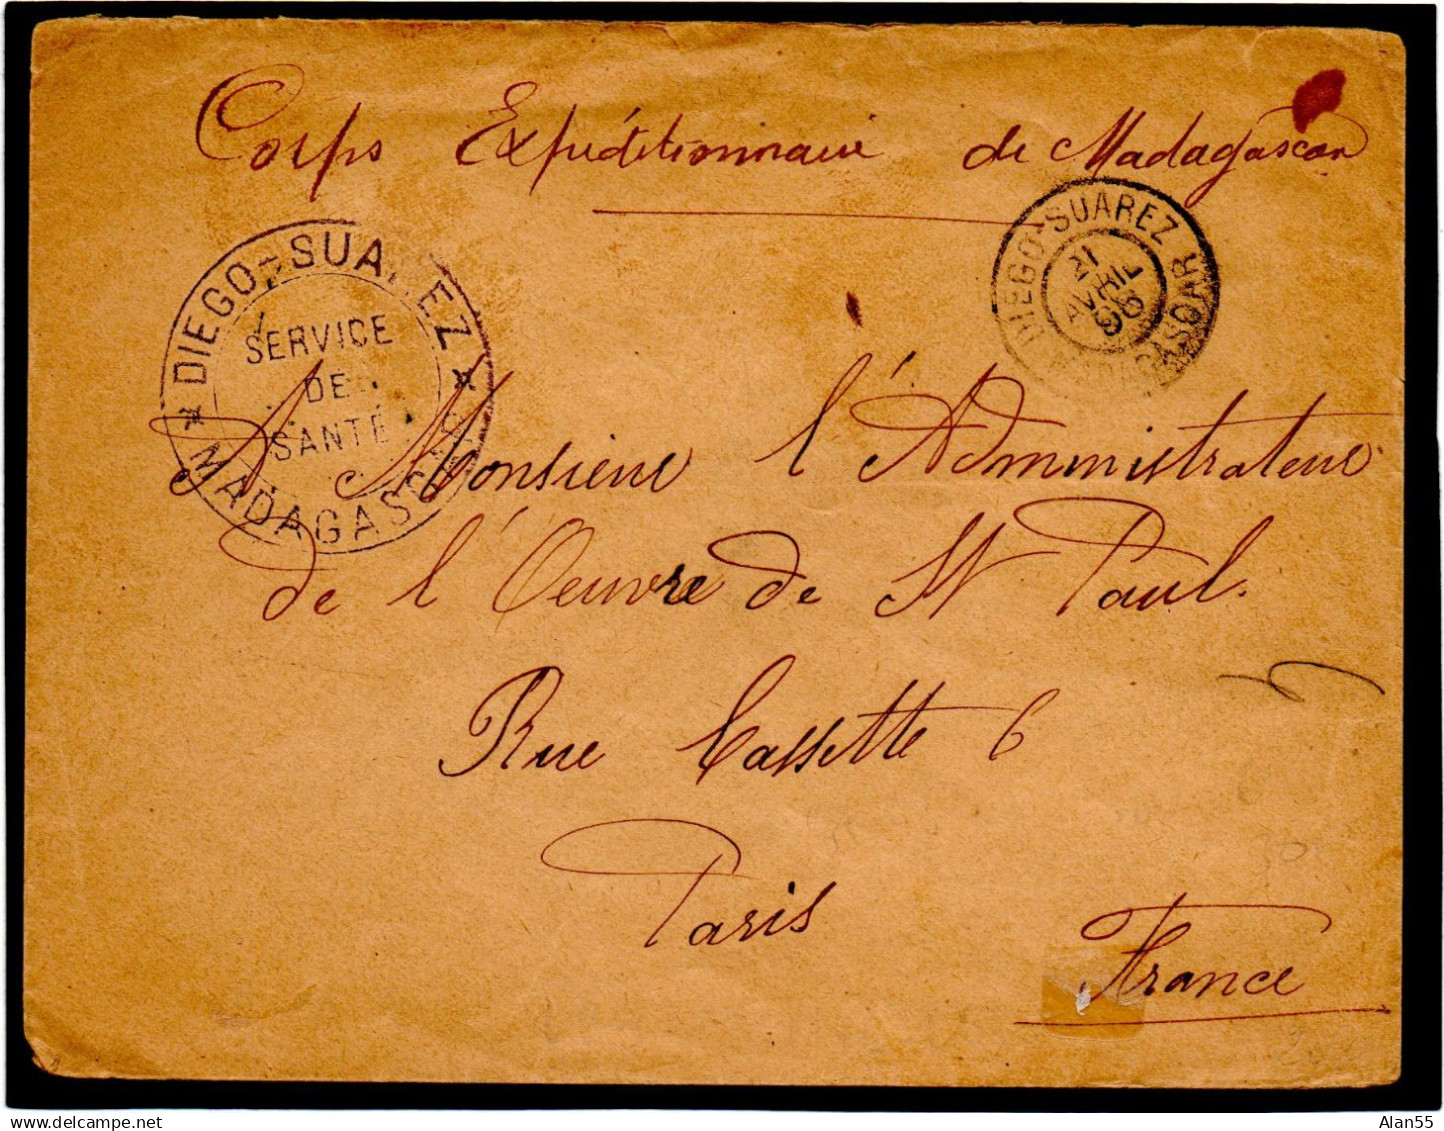 Corps Expéditionnaire de Madagascar
DIEGO-SUAREZ
MADAGASCAR
SERVICE
DE
SANTÉ
DIEGO-SUAREZ
21
AVRIL
96
MADAGASCAR
A Monsieur l'Administrateur
de l'Oeuvre de St Paul.
Rue Cassette 6
Paris
France
Alan55